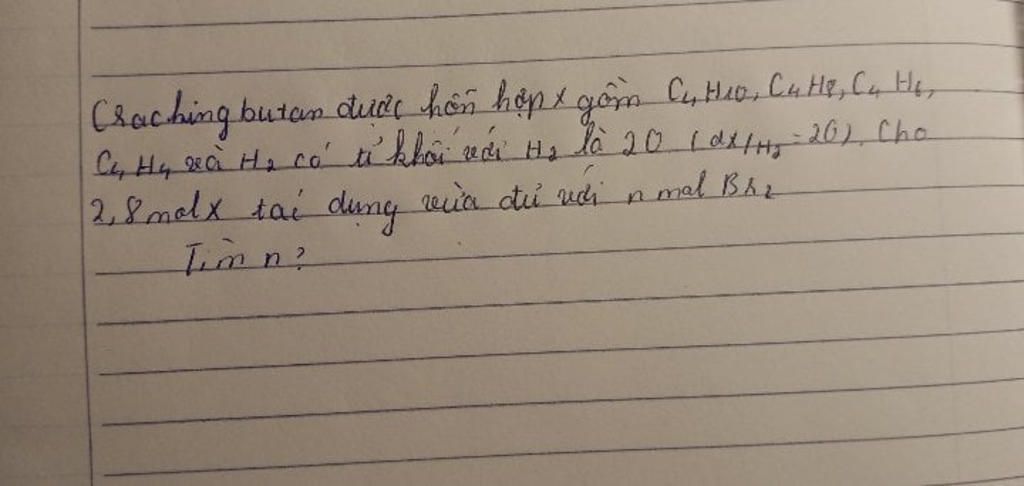 Craching butan được hỗn hợp x gồm C₄H₁₀, C₄H₈, C₄H₆,
C₄H₄ và H₂ có tỉ khối với H₂ là 20 (dx/H₂ = 20). Cho
2,8 mol X tác dụng vừa đủ với n mol Br₂
Tìm n?